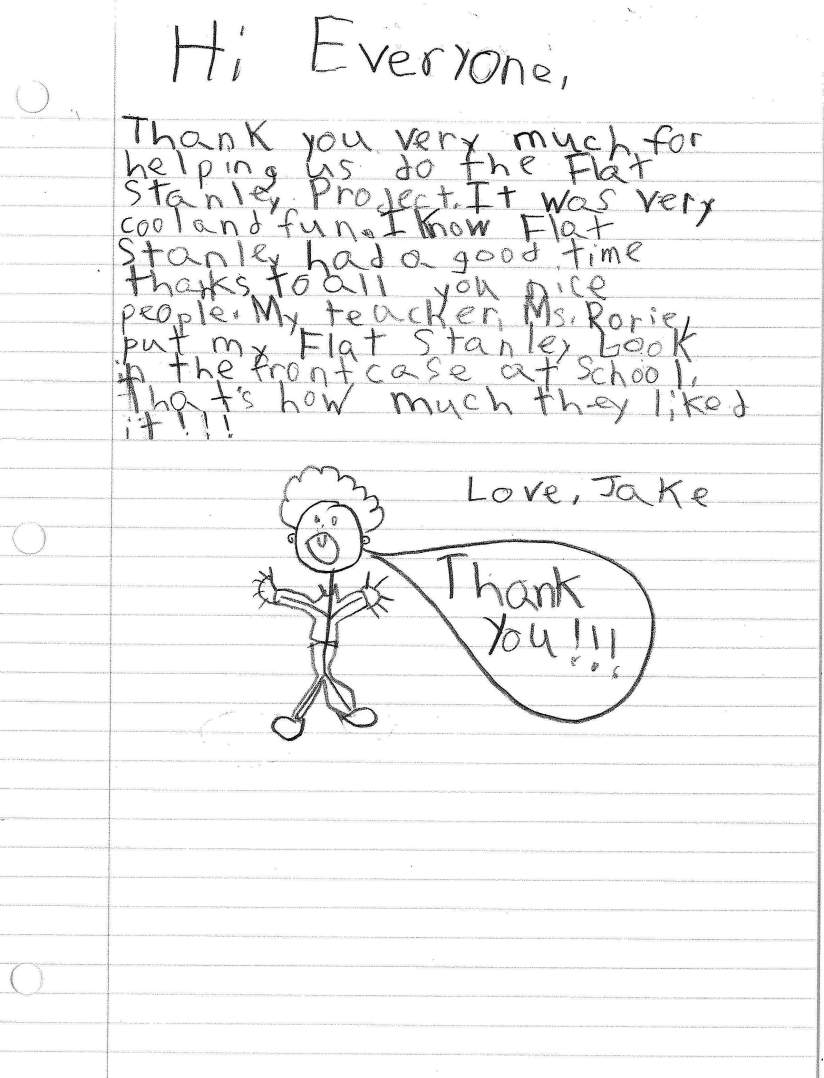 Hi Everyone,
Thank you very much for
helping us do the Flat
Stanley Project. It was very
cool and fun. I Know Flat
Stanley had a good time
thanks to all you nice
people. My teacher, Ms. Rorie,
put my Flat Stanley book
in the front case at School.
That's how much they liked
it!!!
Love, Jake
Thank
You!!!